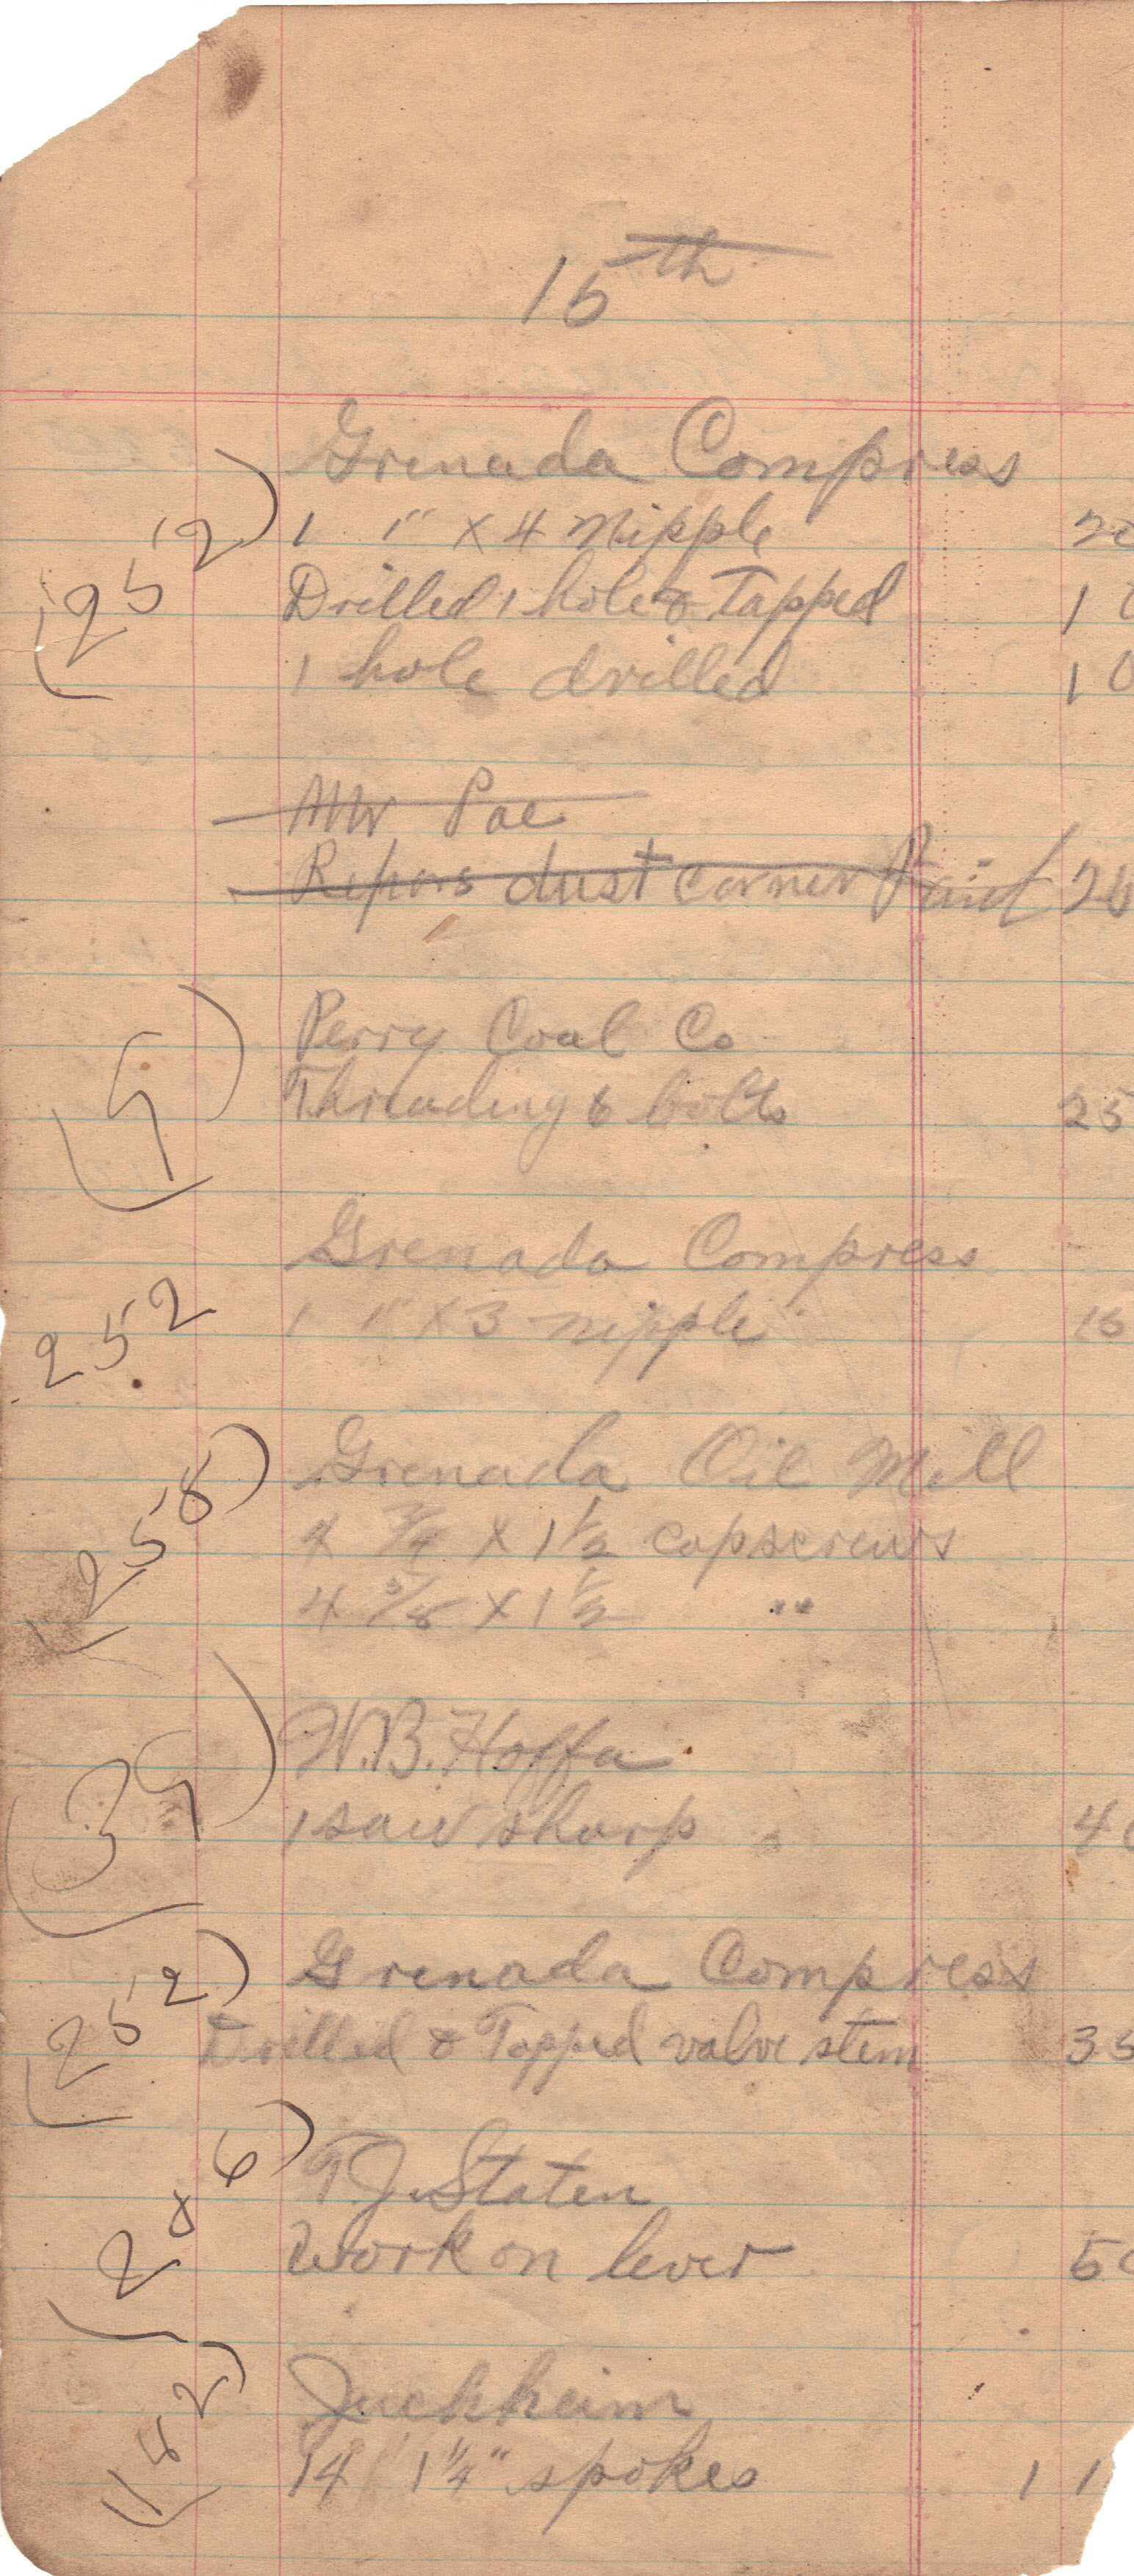 15th
Grenada Compress
(252) 1 1" x 4 Nipple 20
Drilled 1 hole & Tapped 10
1 hole drilled 10
Mr Poe
Repars dust corner Paid 25
Perry Coal Co
(9) Threading 6 bolts 25
Grenada Compress
252 1 1" x 3 nipple 15
(258) Grenada Oil Mill
4 3/4 x 1 1/2 capscrews
4 5/8 x 1 1/2 "
W.B. Hoffa
(39) 1 saw sharp 40
(252) Grenada Compress
Drilled & Tapped valve stem 35
(286) T.J. Staten
Work on lever 50
(182) Juchheim
14 1 1/4" spokes 1 1